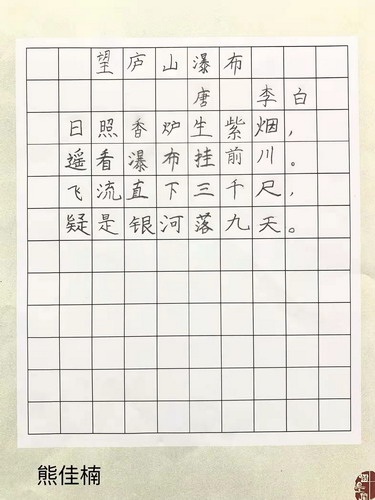 望庐山瀑布
唐 李白
日照香炉生紫烟，
遥看瀑布挂前川。
飞流直下三千尺，
疑是银河落九天。
熊佳楠